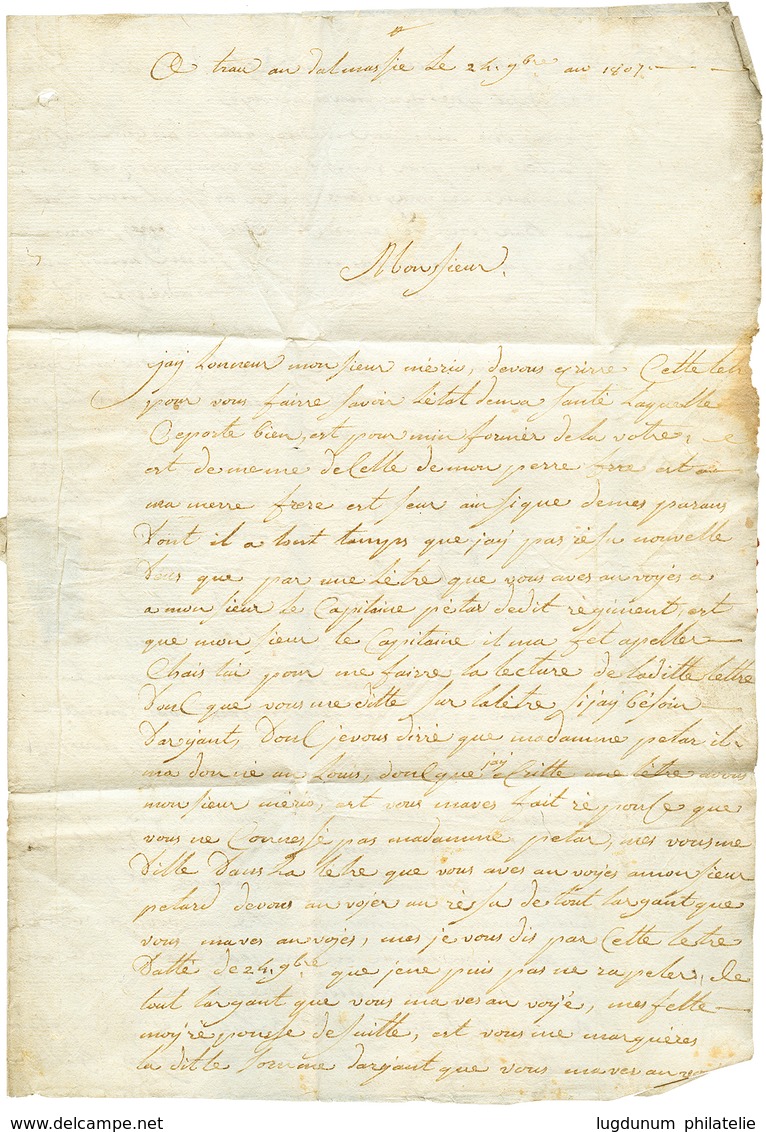 A trau an dalmassie Le 24. 9bre an 1807
Monsieur.
jay honneur monsieur mério, devous Ecrirre Cette letr
pour vous fairre savoir Létat dema santé Laquelle
Ceporte bien, est pour min former de la votre,
est de meme de Celle de mon perre frre est
ma merre frere est seur ainsique demes parans
Dont il a tout temps que jay pas résu nouvelle
Deus que par une Létre que vous aves anvoyés a
a monsieur Le Capitaine pétar dedit régiment, est
que monsieur le Capitaine il ma fet apeller
Chais lui pour me fairre la lecture de la ditte lettre
Donc que vous me ditte sur la létre si jay bésoin
Darjant, Donc je vous dirré que madamme petar il
ma donné un Louis, donc que jay Critte une létre avous
monsieur mério, est vous maves fait réponce que
vous ne Connessé pas madamme petar, mes vous me
Ditte Dans La létre que vous aves anvoyés amonsieur
petard devous anvojer un résu de tout largant que
vous maves anvojés, mes je vous dis par Cette letre
Datté de 24. 9bre que jene puis pas me rapeler, de
tout largant que vous maves anvoyé, mes fette
moy réponsse desuitte, est vous me marquéres
la ditte somme darjant que vous maves
lugdunum philatelie